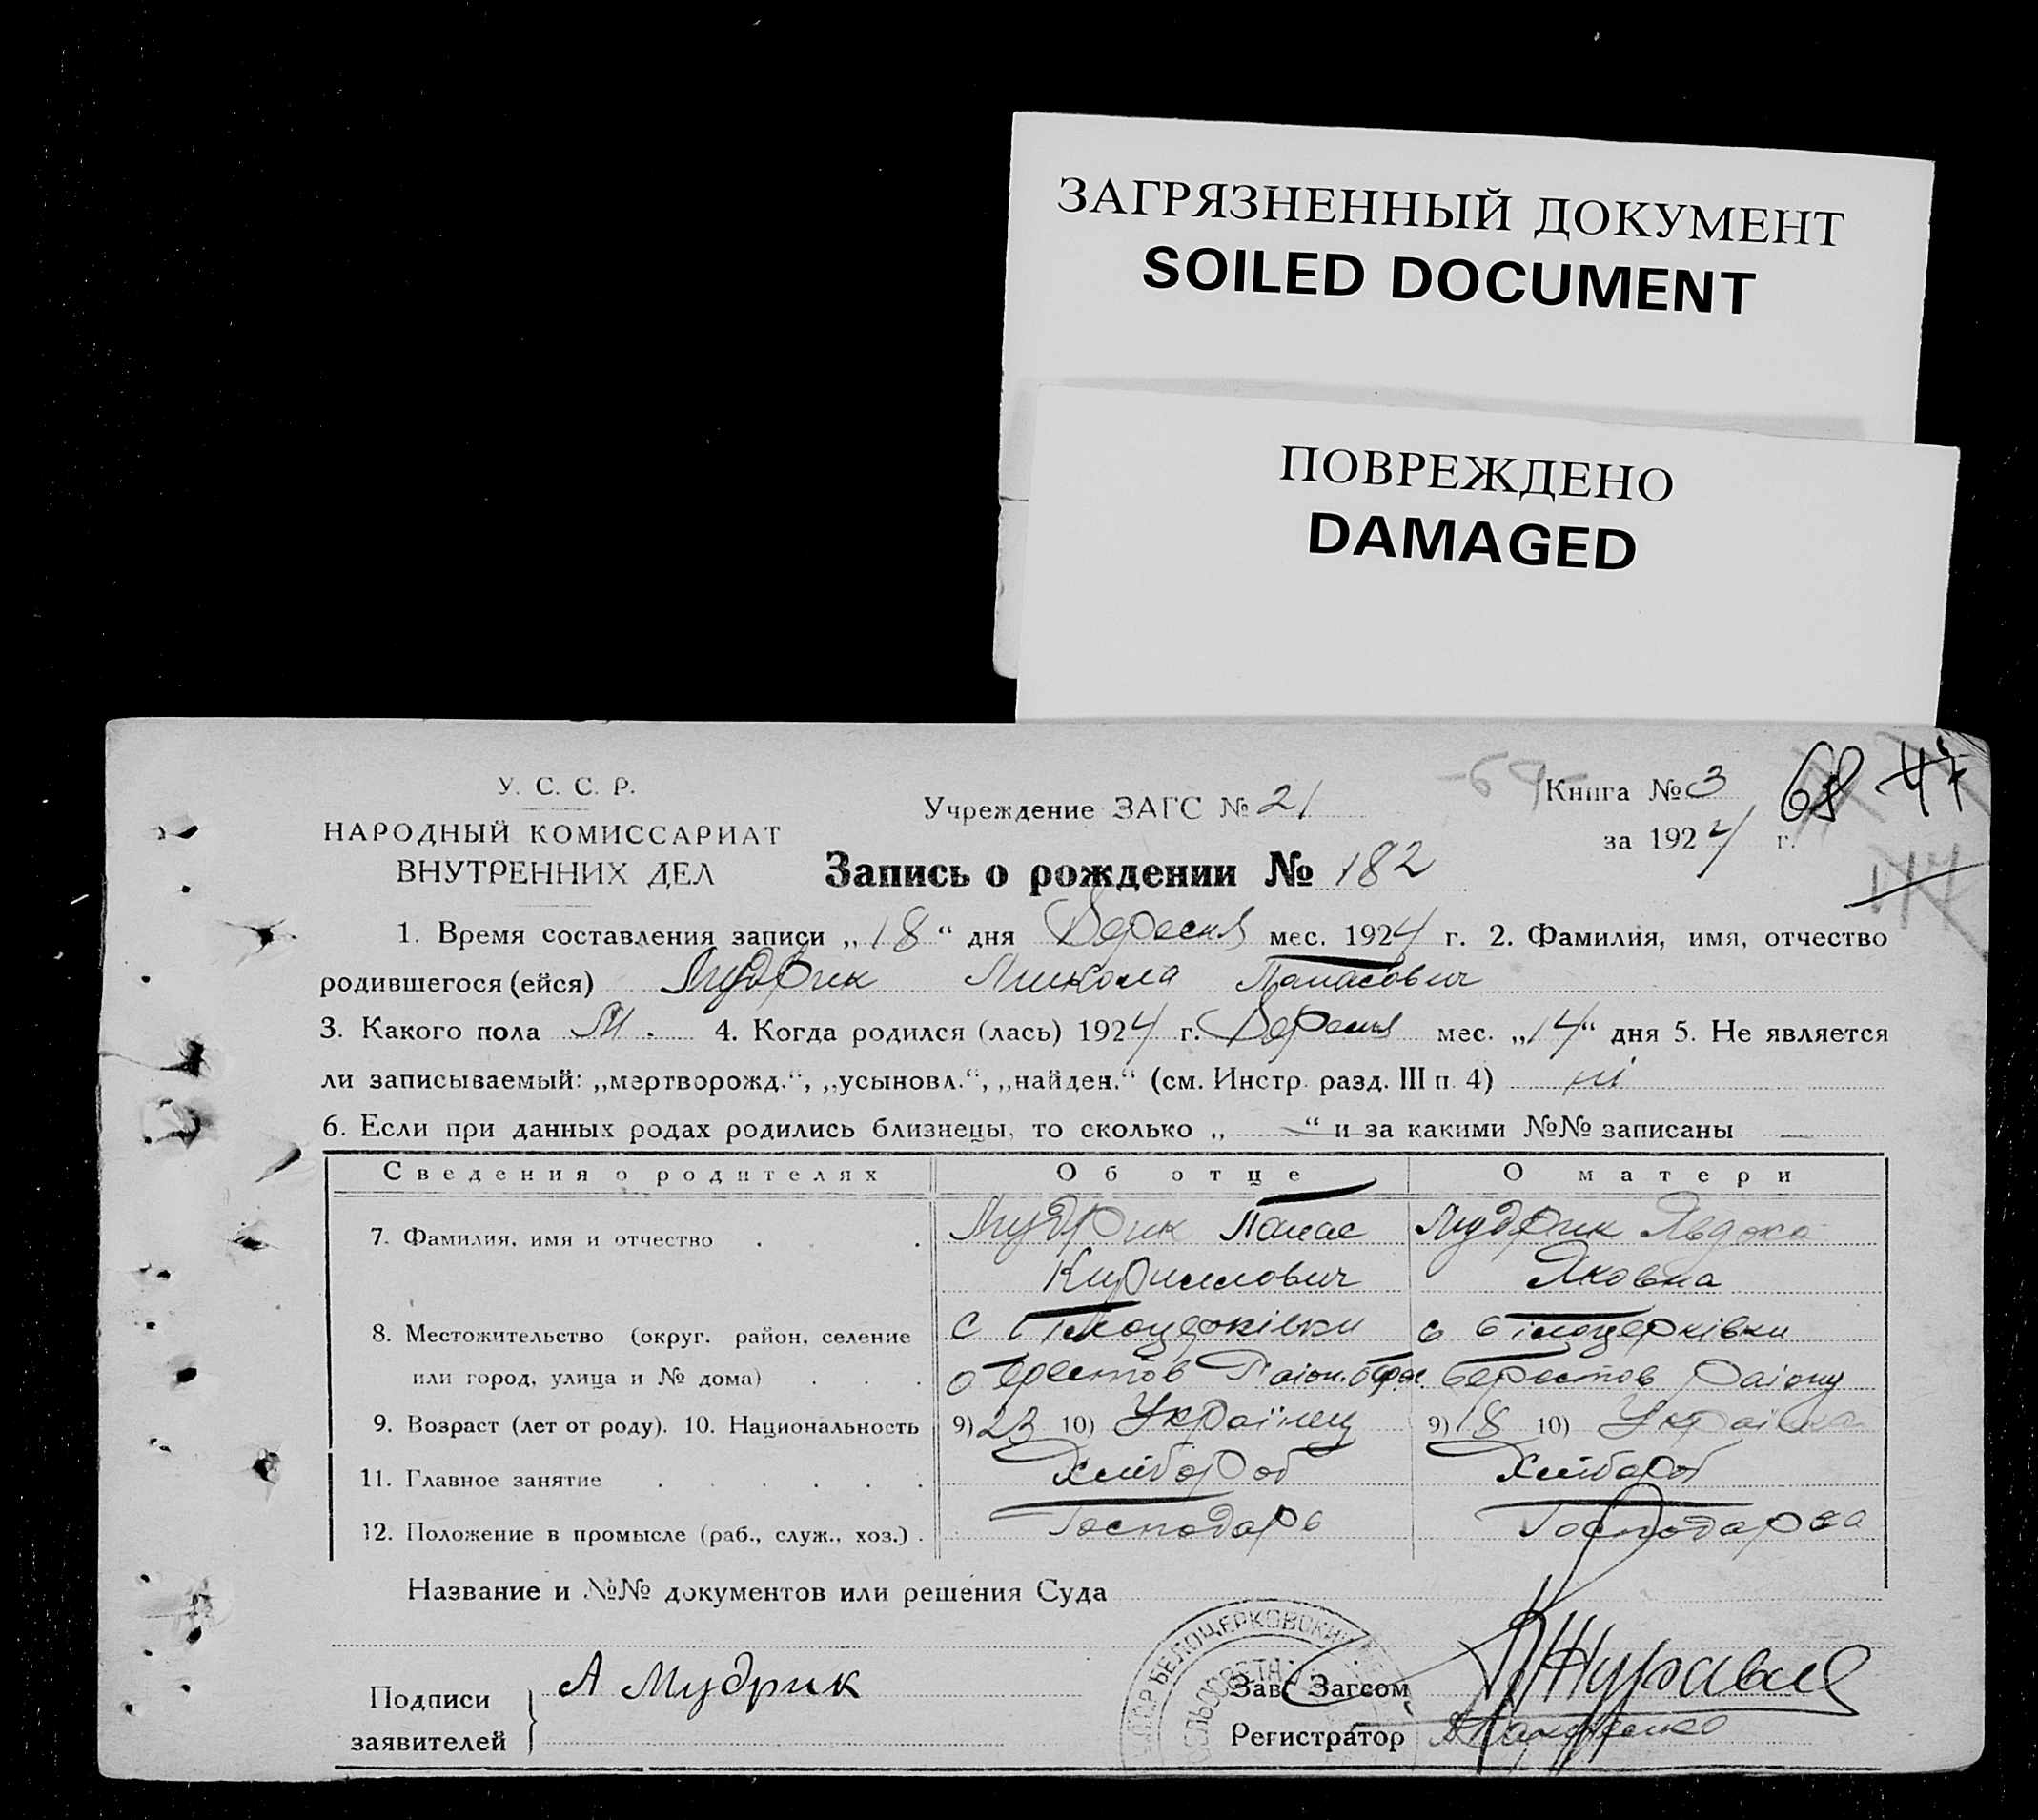 ЗАГРЯЗНЕННЫЙ ДОКУМЕНТ
SOILED DOCUMENT
ПОВРЕЖДЕНО
DAMAGED
У. С. С. Р.
НАРОДНЫЙ КОМИССАРИАТ
ВНУТРЕННИХ ДЕЛ
Учреждение ЗАГС № 21
69 Книга № 3 68 47
за 1924 г.
Запись о рождении № 182
1. Время составления записи „18“ дня Вересня мес. 1924 г. 2. Фамилия, имя, отчество
родившегося (ейся) Мудрик Микола Панасович
3. Какого пола М. 4. Когда родился (лась) 1924 г. Вересня мес. „14“ дня 5. Не является
ли записываемый: „мертворожд.“, „усыновл.“, „найден.“ (см. Инстр. разд. III п. 4) ні
6. Если при данных родах родились близнецы, то сколько „ — “ и за какими №№ записаны —
Сведения о родителях Об отце О матери
7. Фамилия, имя и отчество Мудрик Панас Мудрик Явдоха
Кириллович Яковна
8. Местожительство (округ. район, селение с Білоцерківки с Білоцерківки
или город, улица и № дома) Берестов Район. Берестов Району
9. Возраст (лет от роду). 10. Национальность 9) 23 10) Українец 9) 18 10) Українка
11. Главное занятие Хлібороб Хлібороб
12. Положение в промысле (раб., служ., хоз.) Господарь Господарка
Название и №№ документов или решения Суда
БЕЛОЦЕРКОВСКИ
СЕЛЬСОВЕТА
Подписи А Мудрик Зав. Загсом
заявителей Регистратор